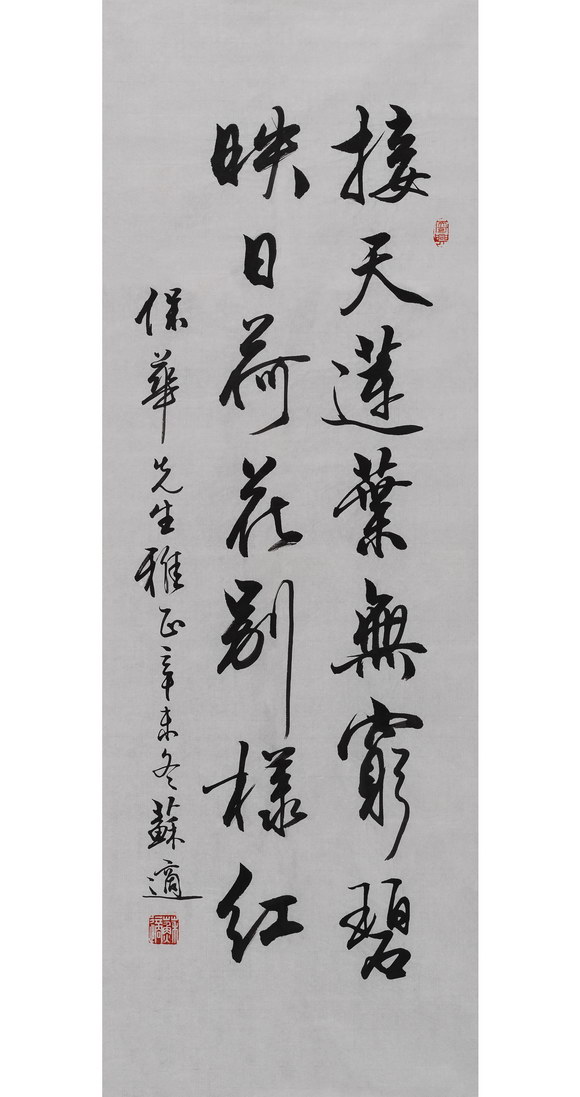 接天蓮葉無窮碧
映日荷花别樣红
保華先生雅正辛未冬蘇適